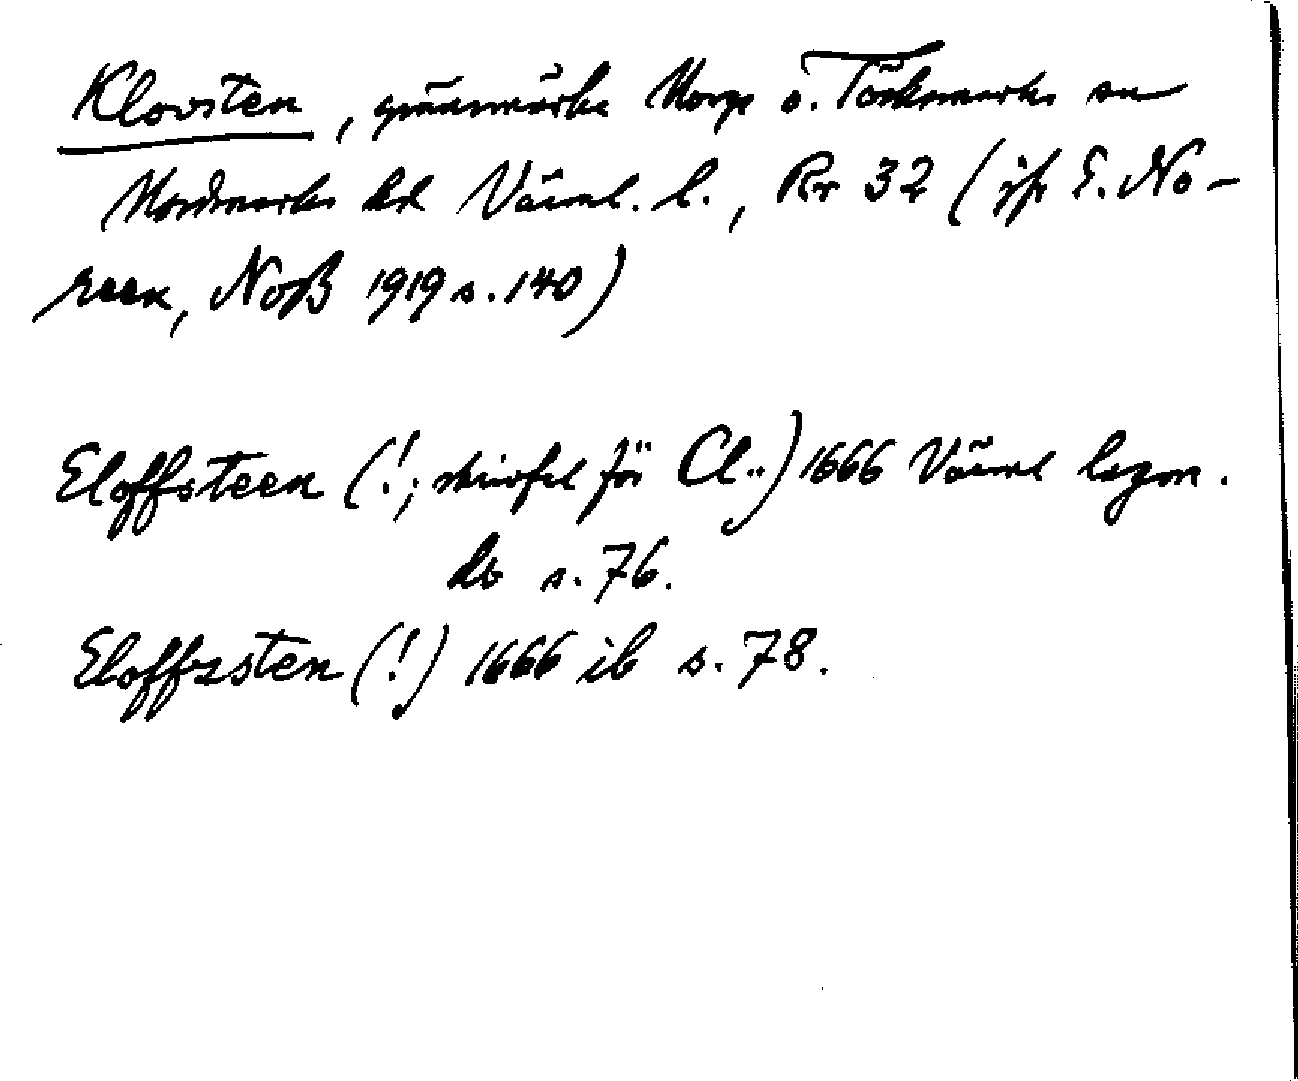 Klovsten, gränsmärke Norge o. Töcksmarks sn
Nordmarks hd Värml. l., Rr 32 (jfr E. No-
reen, NoB 1919 s. 140)
Eloffsteen (!; skrivfel för Cl..) 1666 Värml lagm.
db s. 76.
Eloffzsten (!) 1666 ib s. 78.